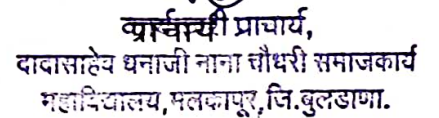 प्राचार्य,
दादासाहेब धनाजी नाना चौधरी समाजकार्य
महाविद्यालय,मलकापूर,जि.बुलडाणा.